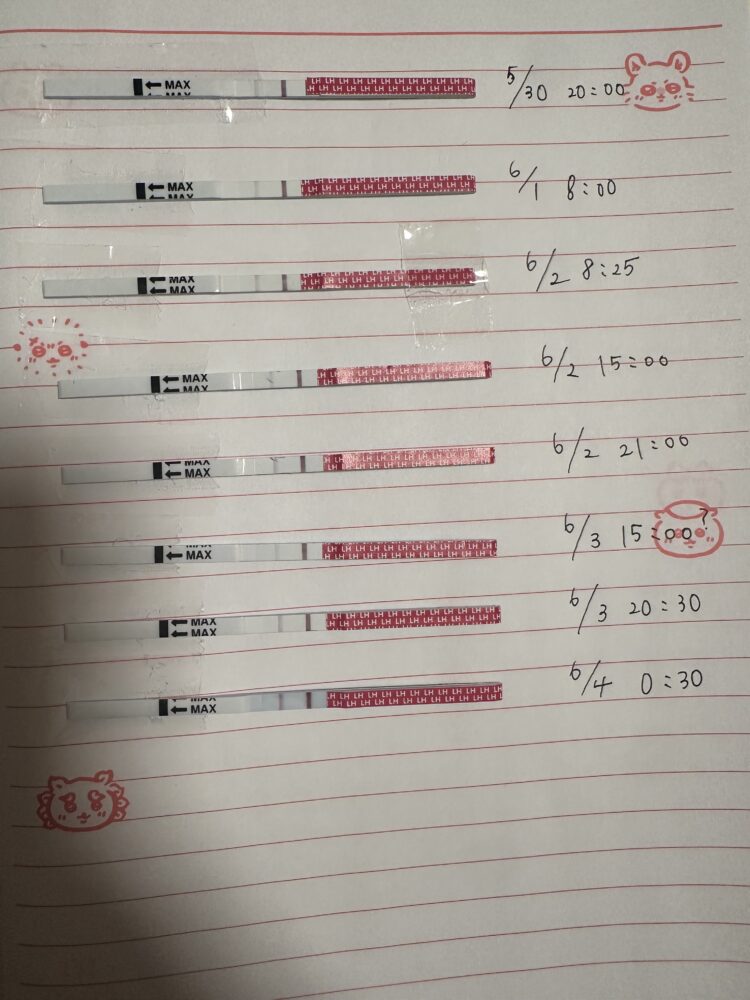 MAX LH LH LH LH LH LH LH LH LH LH LH LH 5/30 20:00
MAX LH LH LH LH LH LH LH LH LH LH LH LH 6/1 8:00
MAX MAX LH LH LH LH LH LH LH LH LH LH LH LH 6/2 8:25
MAX MAX LH LH LH LH LH LH LH LH LH LH LH LH 6/2 15:00
MAX MAX LH LH LH LH LH LH LH LH LH LH LH LH 6/2 21:00
MAX MAX LH LH LH LH LH LH LH LH LH LH LH LH 6/3 15:00?
MAX MAX LH LH LH LH LH LH LH LH LH LH LH LH 6/3 20:30
MAX MAX LH LH LH LH LH LH LH LH LH LH LH LH 6/4 0:30